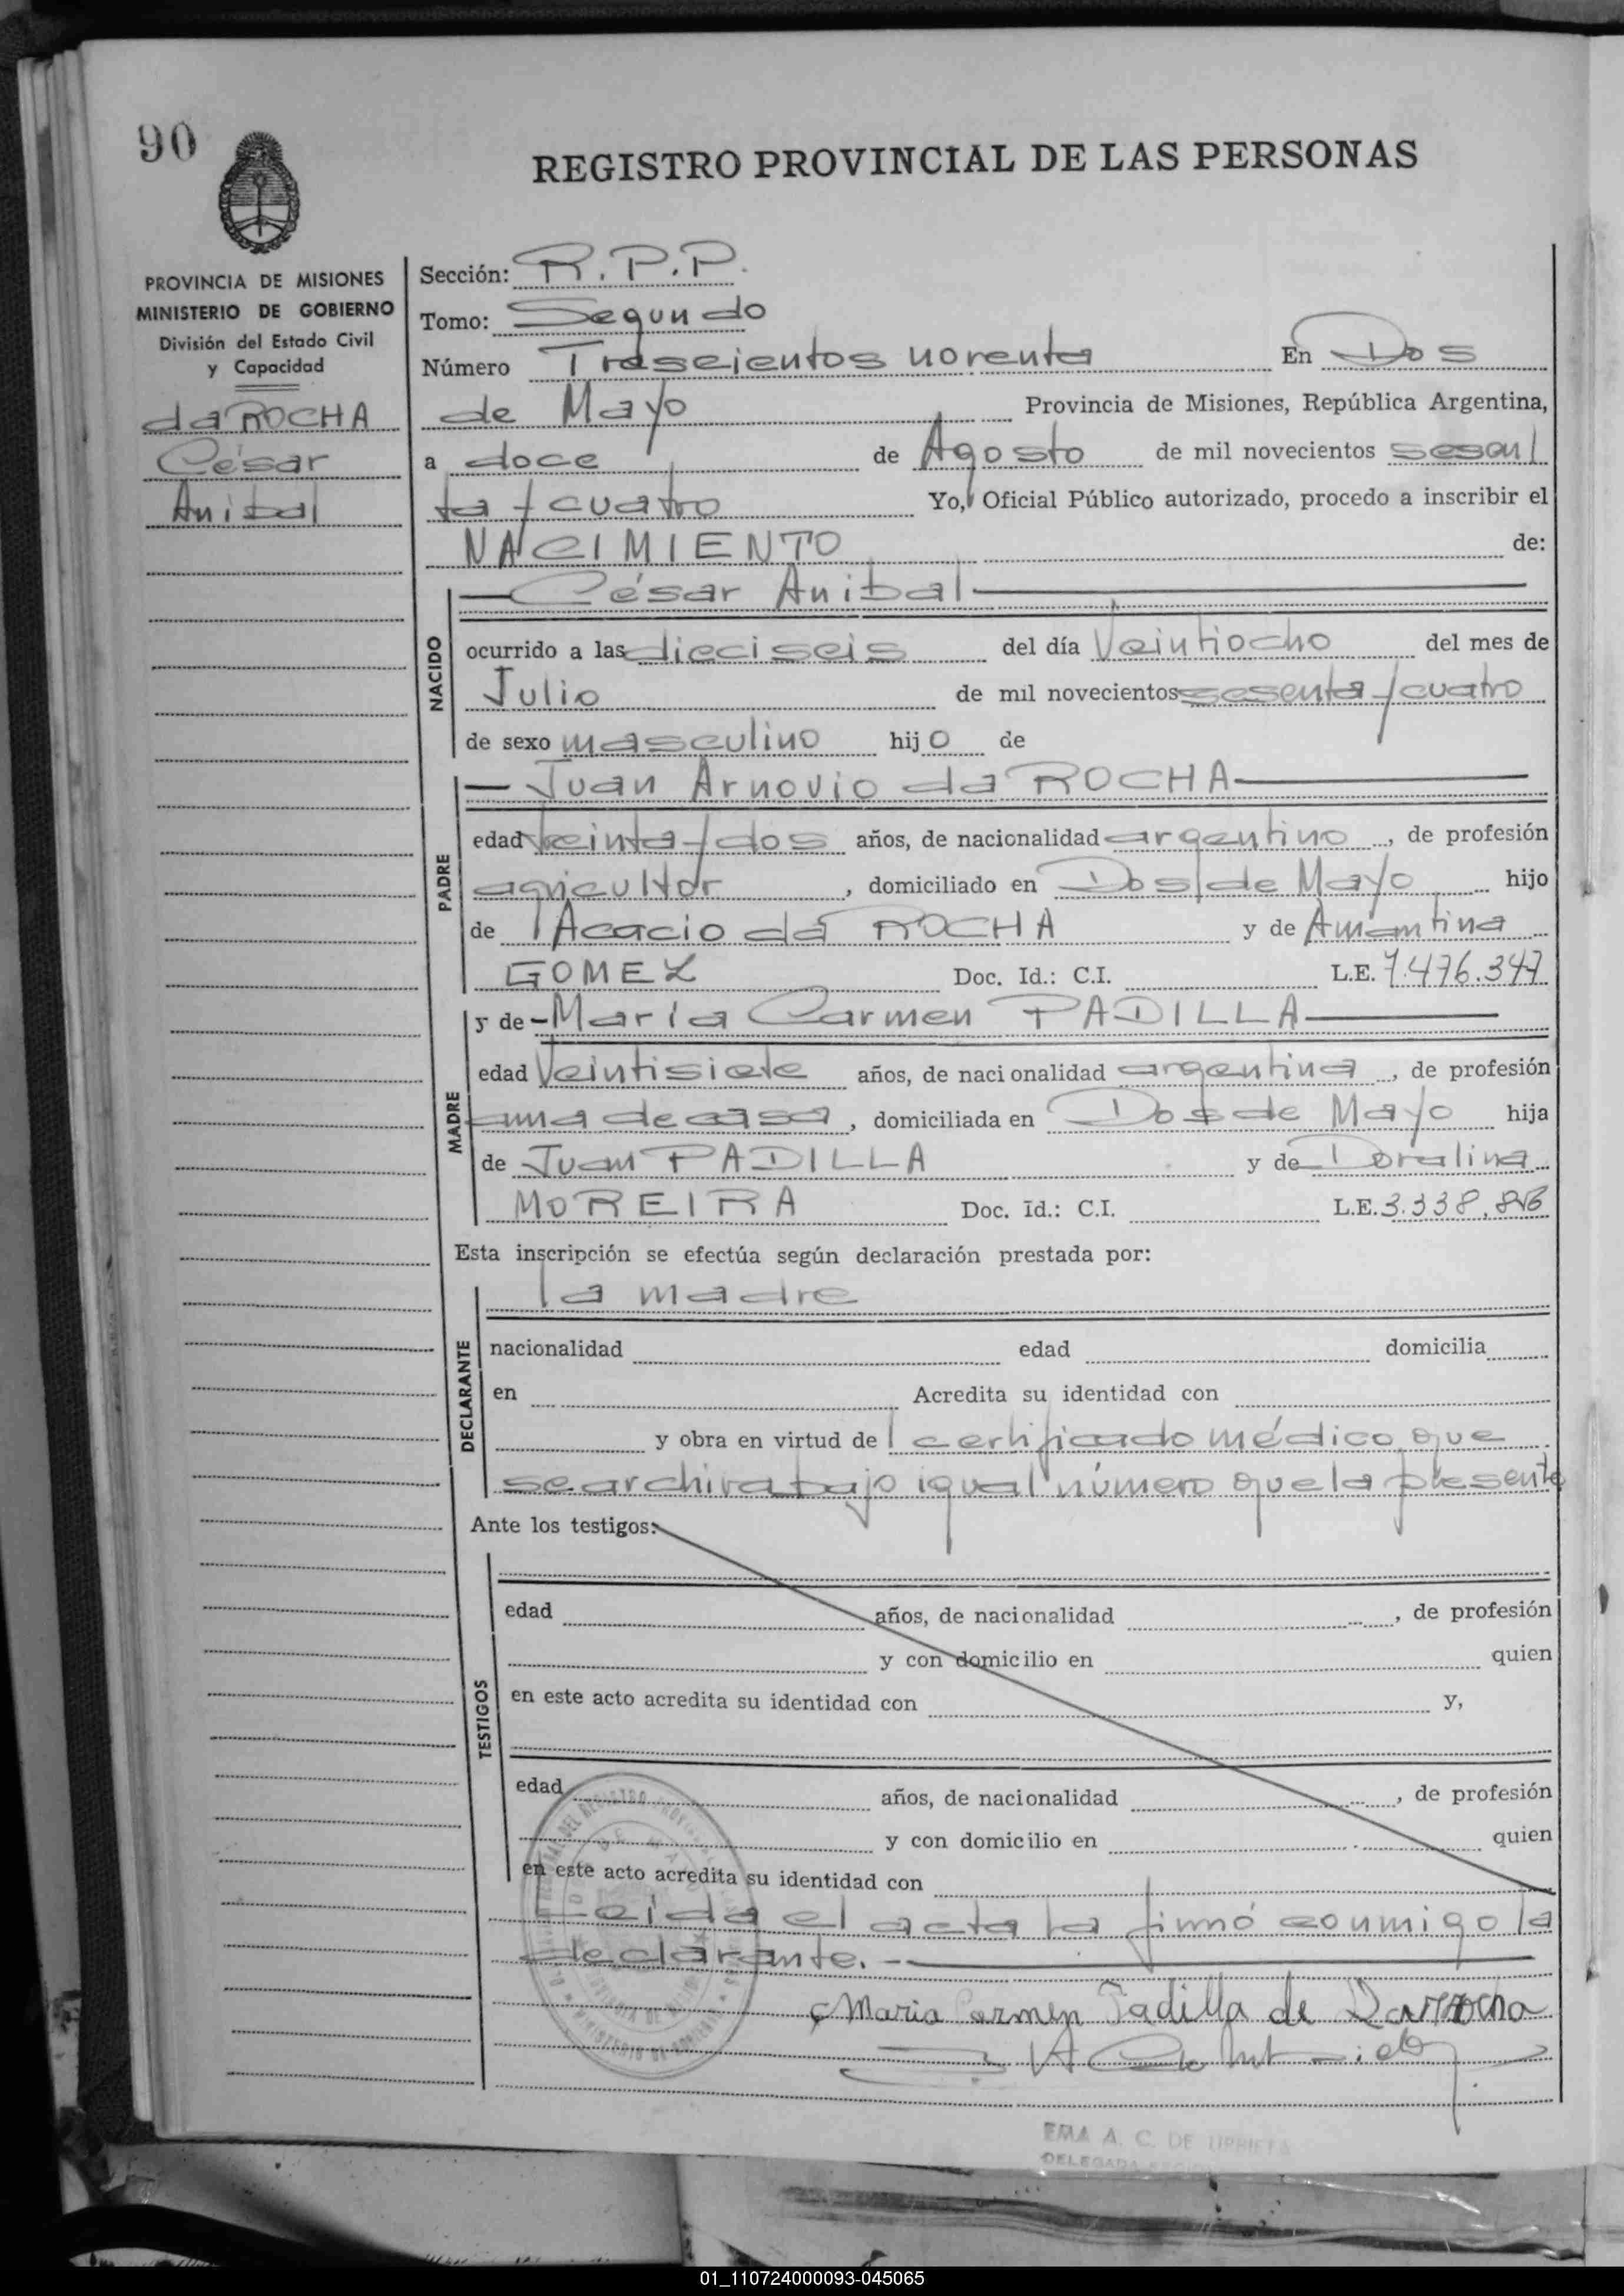 90
REGISTRO PROVINCIAL DE LAS PERSONAS
PROVINCIA DE MISIONES
MINISTERIO DE GOBIERNO
División del Estado Civil
y Capacidad
da ROCHA
César
Anibal
Sección: R.P.P.
Tomo: Segundo
Número Trescientos noventa En Dos
de Mayo Provincia de Misiones, República Argentina,
a doce de Agosto de mil novecientos sesen
ta y cuatro Yo, Oficial Público autorizado, procedo a inscribir el
NACIMIENTO de:
NACIDO
César Anibal
ocurrido a las dieciseis del día Veintiocho del mes de
Julio de mil novecientos sesenta y cuatro
de sexo masculino hijo de
PADRE
Juan Arnovio da ROCHA
edad treinta y dos años, de nacionalidad argentino, de profesión
agricultor, domiciliado en Dos de Mayo hijo
de Acacio da ROCHA y de Amantina
GOMEZ Doc. Id.: C.I. L.E. 7.476.347
MADRE
y de María Carmen PADILLA
edad Veintisiete años, de nacionalidad argentina, de profesión
ama de casa, domiciliada en Dos de Mayo hija
de Juan PADILLA y de Doralina
MOREIRA Doc. Id.: C.I. L.E. 3.338.
Esta inscripción se efectúa según declaración prestada por:
DECLARANTE
la madre
nacionalidad edad domicilia
en Acredita su identidad con
y obra en virtud de certificado médico que
se archiva bajo igual número que la presente
Ante los testigos:
TESTIGOS
edad años, de nacionalidad , de profesión
y con domicilio en quien
en este acto acredita su identidad con y,
edad años, de nacionalidad , de profesión
y con domicilio en quien
en este acto acredita su identidad con
Leida el acta la firmó conmigo la
declarante.
Maria Carmen Padilla de Darrocha
EMA A. C. DE URRIETA
DELEGADA
01_110724000093-045065